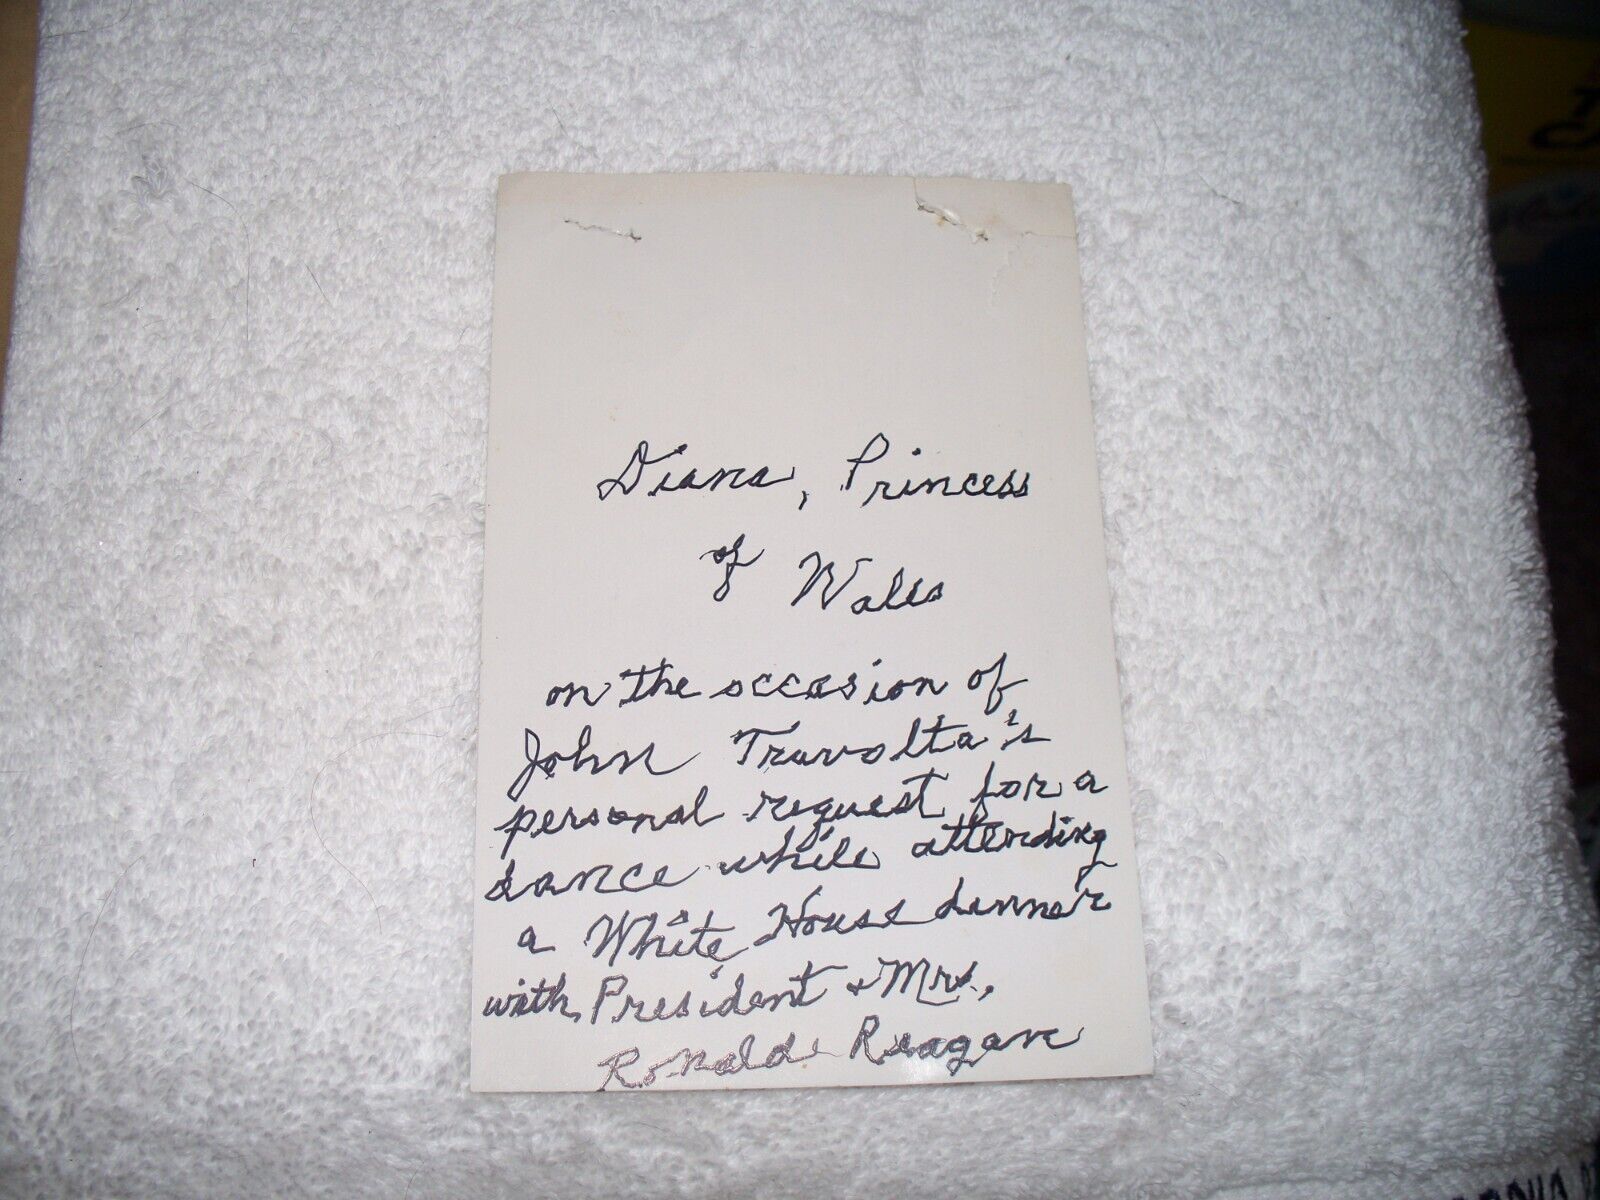 Diana, Princess
of Wales
on the occasion of
John Travolta's
personal request for a
dance while attending
a White House dinner
with President & Mrs.
Ronald Reagan